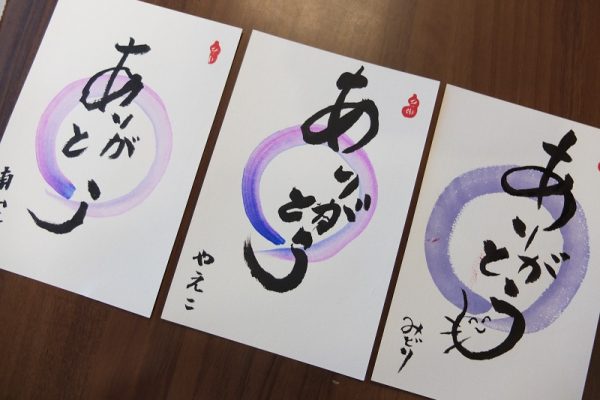 ありがとう
ありがとう
やえこ
ありがとう
みどり